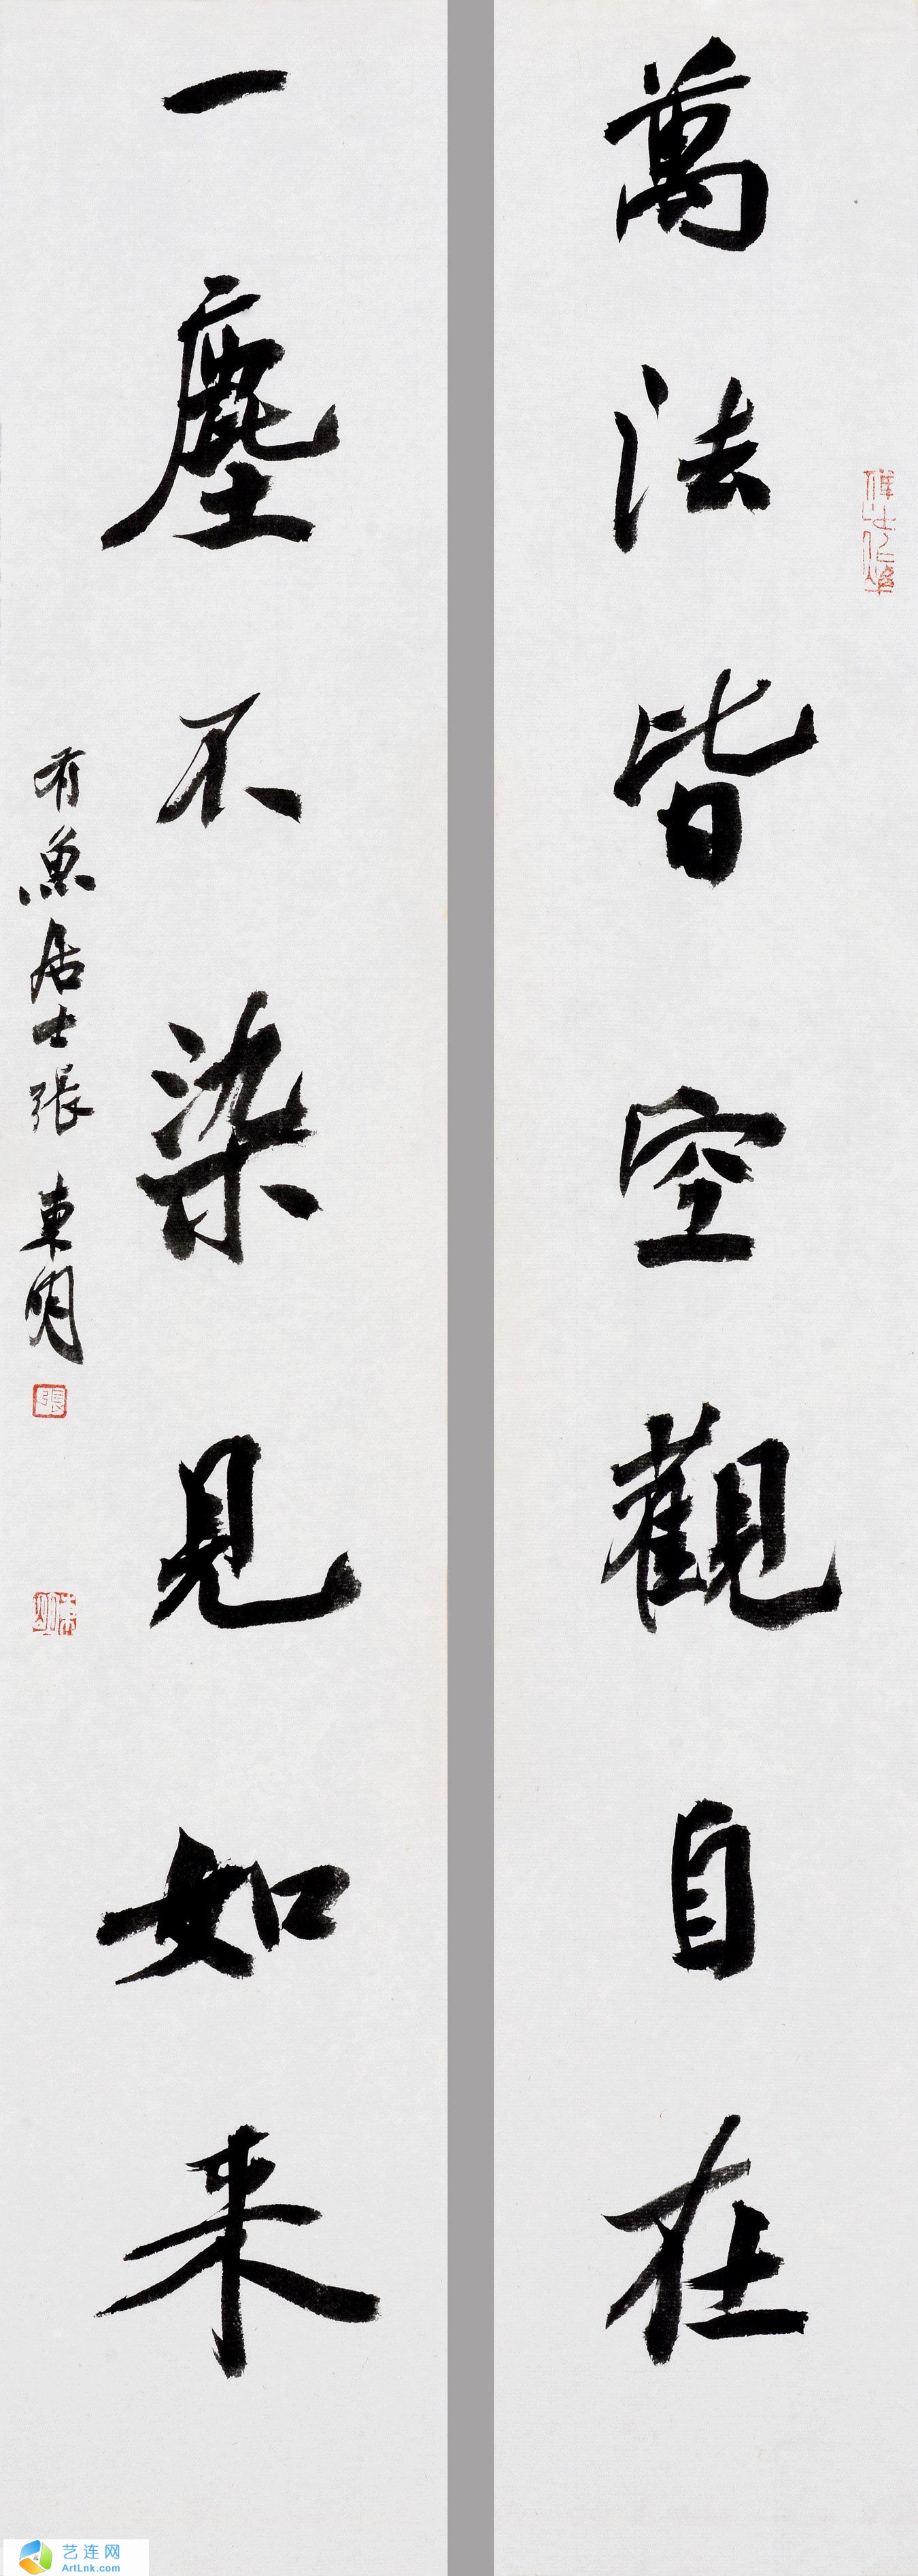 萬法皆空觀自在
一塵不染見如来
有魚居士張東明
張
艺连网
ArtLnk.com